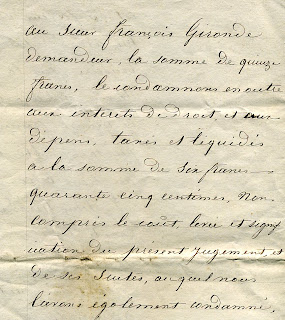 au Sieur françois Gironde
demandeur, la somme de quinze
francs, le condamnons en outre
aux intérets de droit, et aux
dépens, taxés et liquidés
a la somme de Six francs
quarante cinq centimes, Non
compris le coût, levée et signif
ication du présent Jugement, et
de ses Suites, auquel nous
l'avons également condamné,